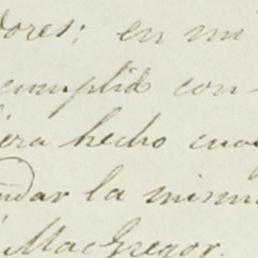 dores; en mi
cumplid con
era hecho cua
ndar la mism
MacGregor.